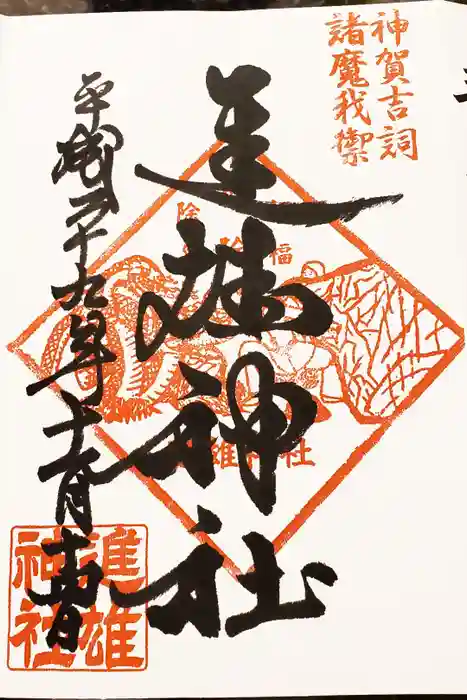 神賀吉詞
諸魔我禦
進雄神社
除
福
雄神社
平成二十九年十一月
進雄
神社